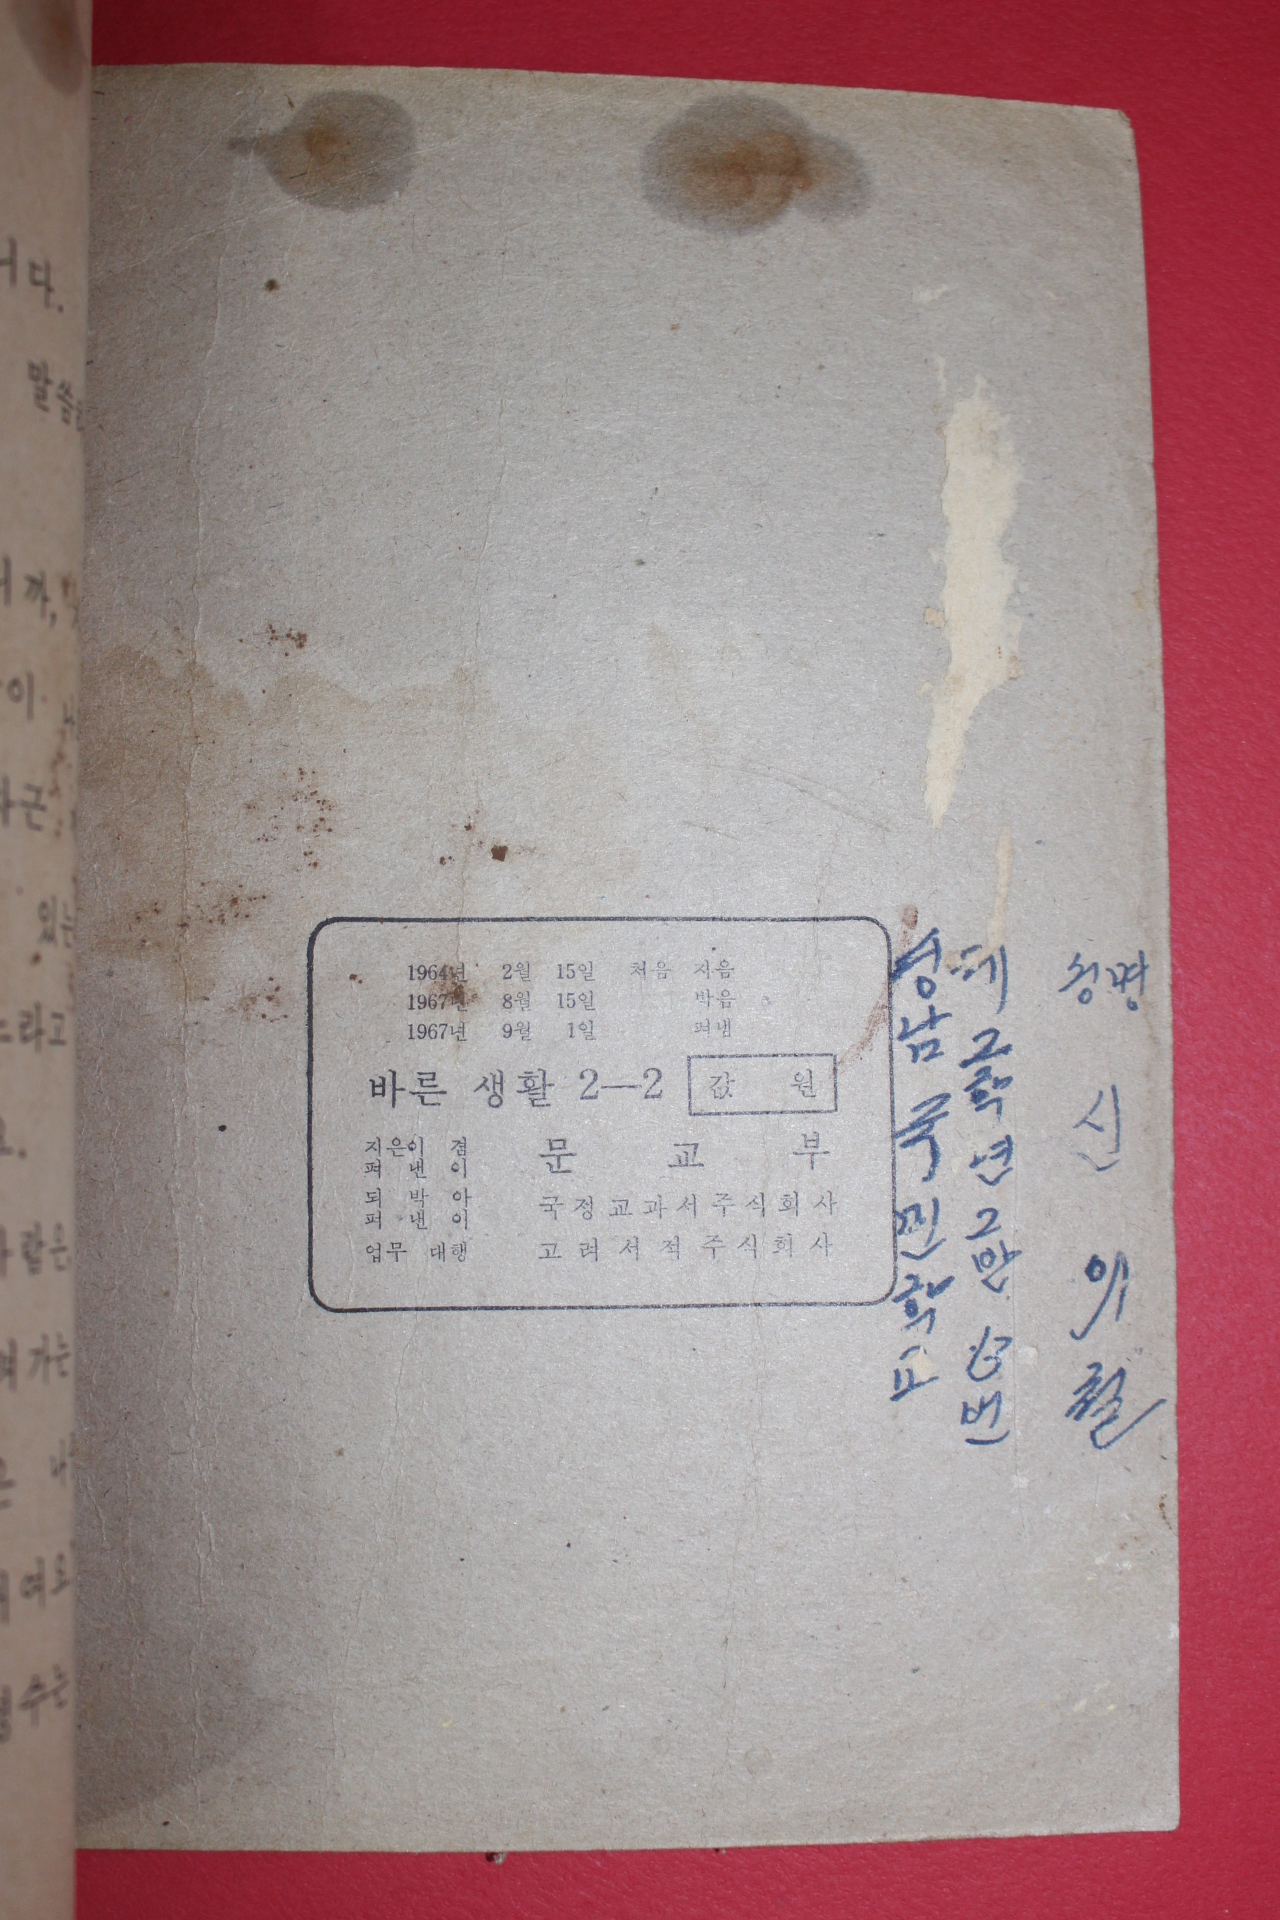 니다.
말씀
니까,
이
다근
있는
느라고
고.
사람은
여 가는
여로
수는
1964년 2월 15일 처음 지음
1967년 8월 15일 박음
1967년 9월 1일 펴냄
바른 생활 2—2 값 원
지은이 겸
펴 낸 이 문 교 부
되 박 아
펴 낸 이 국정교과서주식회사
업무 대행 고려서적주식회사
성남국민학교
제2학년2반 63번
성명 신이철